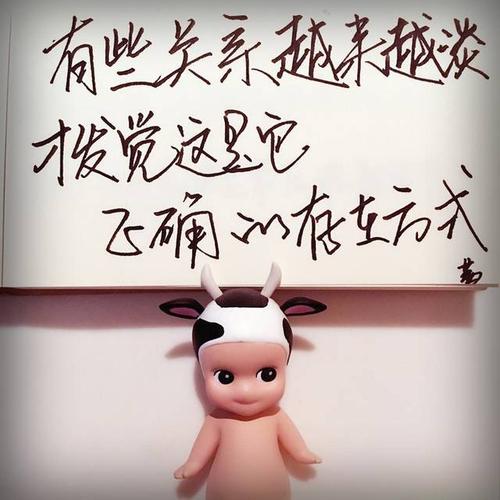 有些关系越来越淡
才发觉这是它
正确的存在方式